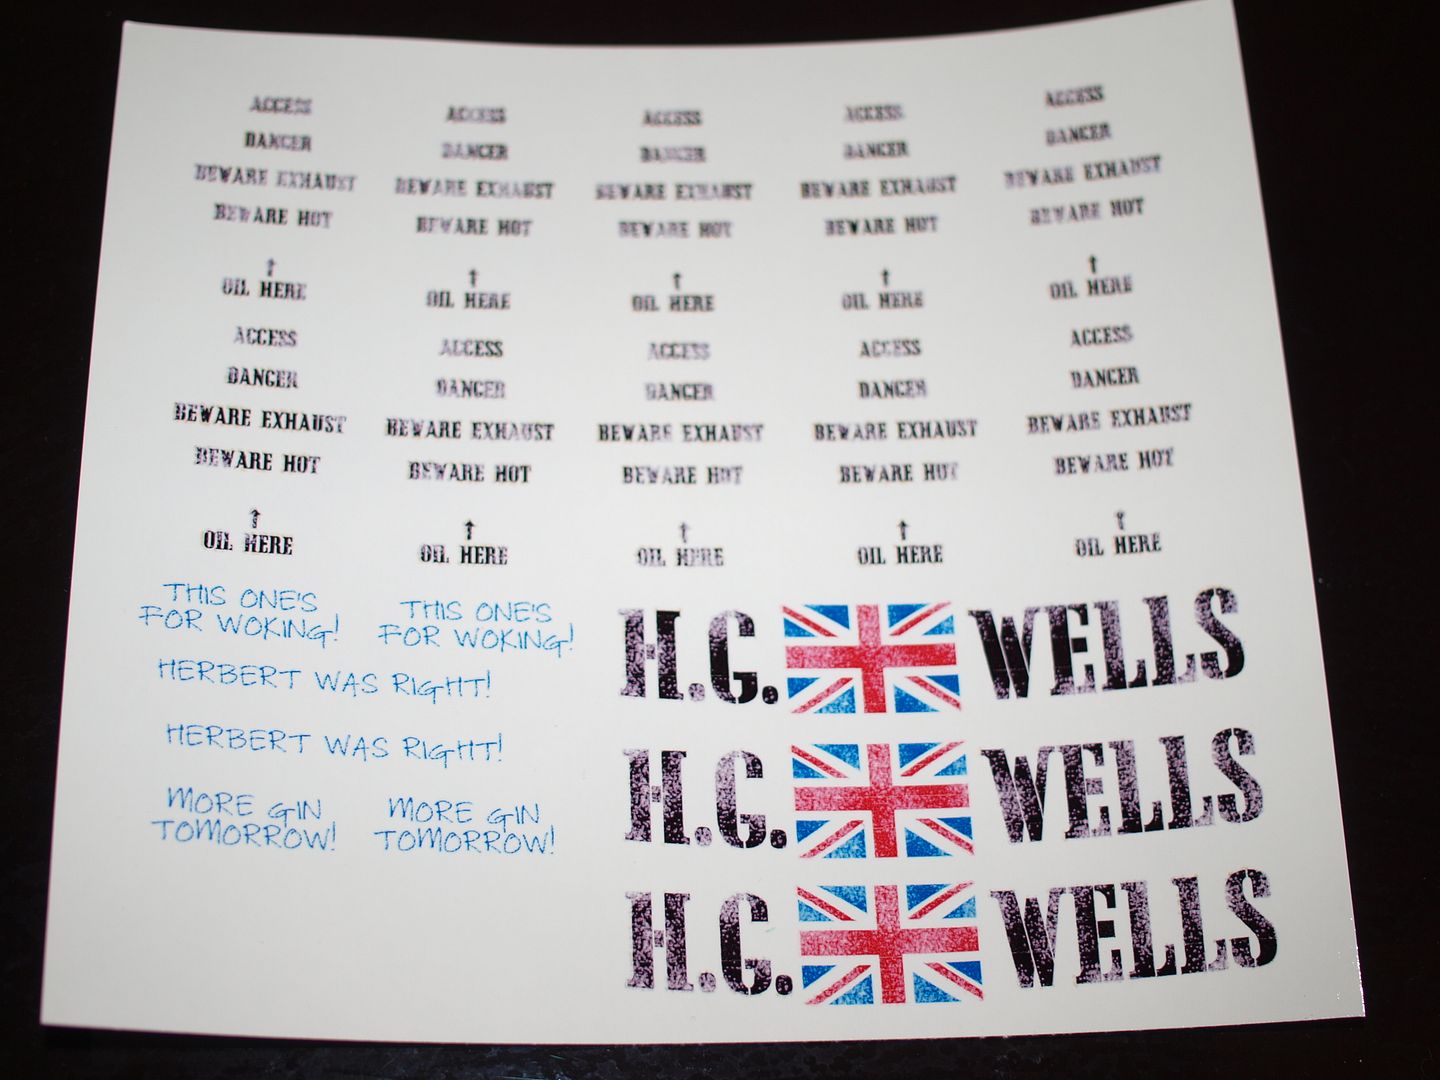 ACCESS ACCESS ACCESS ACCESS ACCESS
DANGER DANGER DANGER DANGER DANGER
BEWARE EXHAUST BEWARE EXHAUST BEWARE EXHAUST BEWARE EXHAUST BEWARE EXHAUST
BEWARE HOT BEWARE HOT BEWARE HOT BEWARE HOT BEWARE HOT
↑ ↑ ↑ ↑ ↑
OIL HERE OIL HERE OIL HERE OIL HERE OIL HERE
ACCESS ACCESS ACCESS ACCESS ACCESS
DANGER DANGER DANGER DANGER DANGER
BEWARE EXHAUST BEWARE EXHAUST BEWARE EXHAUST BEWARE EXHAUST BEWARE EXHAUST
BEWARE HOT BEWARE HOT BEWARE HOT BEWARE HOT BEWARE HOT
↑ ↑ ↑ ↑ ↑
OIL HERE OIL HERE OIL HERE OIL HERE OIL HERE
THIS ONE'S
FOR WOKING!
THIS ONE'S
FOR WOKING!
HERBERT WAS RIGHT!
HERBERT WAS RIGHT!
MORE GIN
TOMORROW!
MORE GIN
TOMORROW!
H.G. WELLS
H.G. WELLS
H.G. WELLS